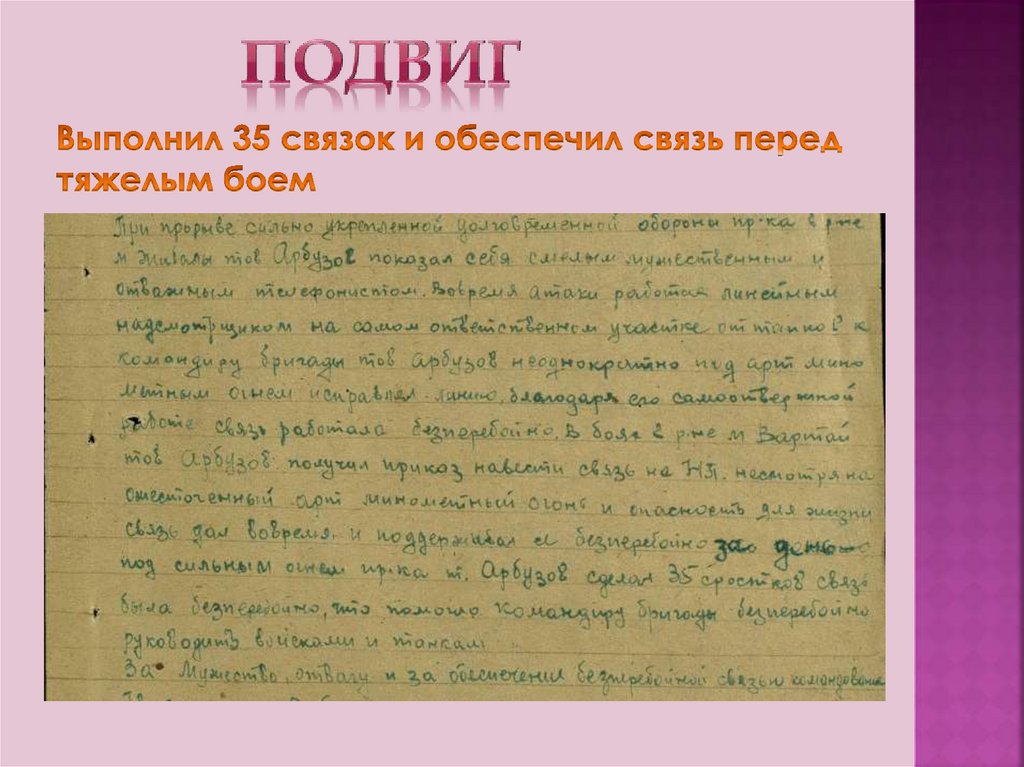 ПОДВИГ
Выполнил 35 связок и обеспечил связь перед
тяжелым боем
При прорыве сильно укрепленной долговременной обороны пр-ка в р-не
м тов Арбузов показал себя смелым мужественным и
отважным телефонистом. Вовремя атаки работая линейным
надсмотрщиком на самом ответственном участке от танков к
командиру бригады тов Арбузов неоднократно под арт мино
метным огнем исправлял линию, благодаря его самоотвержной
работе связь работала безперебойно. В боях в р-не м Вартай
тов Арбузов получил приказ навести связь на НП. несмотря на
ожесточенный арт минометный огонь и опасность для жизни
связь дал вовремя и поддерживал ее безперебойно за день
под сильным огнем пр-ка т. Арбузов сделал 35 сростков связь
была безперебойно, что помогло командиру бригады безперебойно
руководить войсками и танкам
За мужество, отвагу и за обеспечение безперебойной связью командования